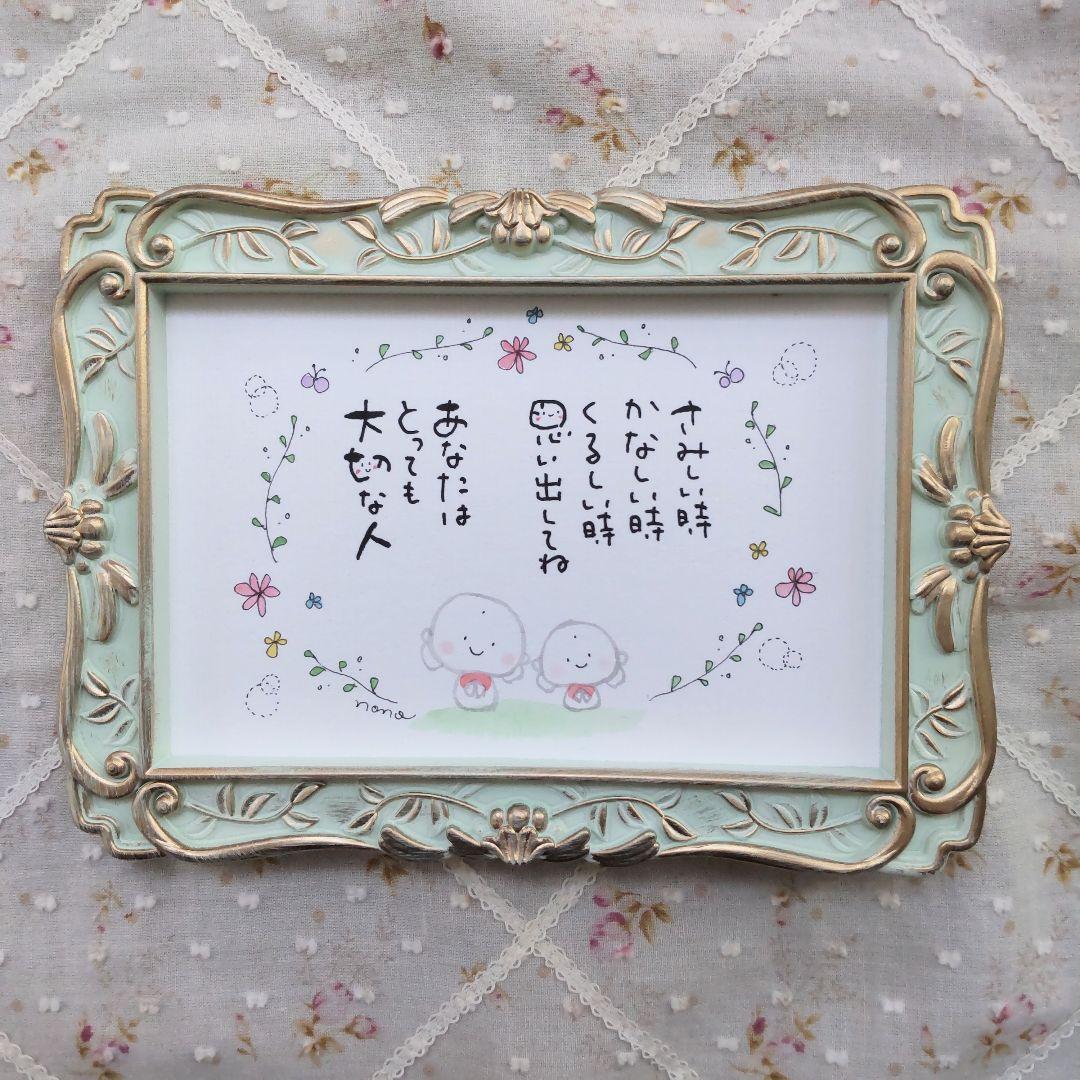 さみしい時
かなしい時
くるしい時
思い出してね
あなたは
とっても
大切な人
nana